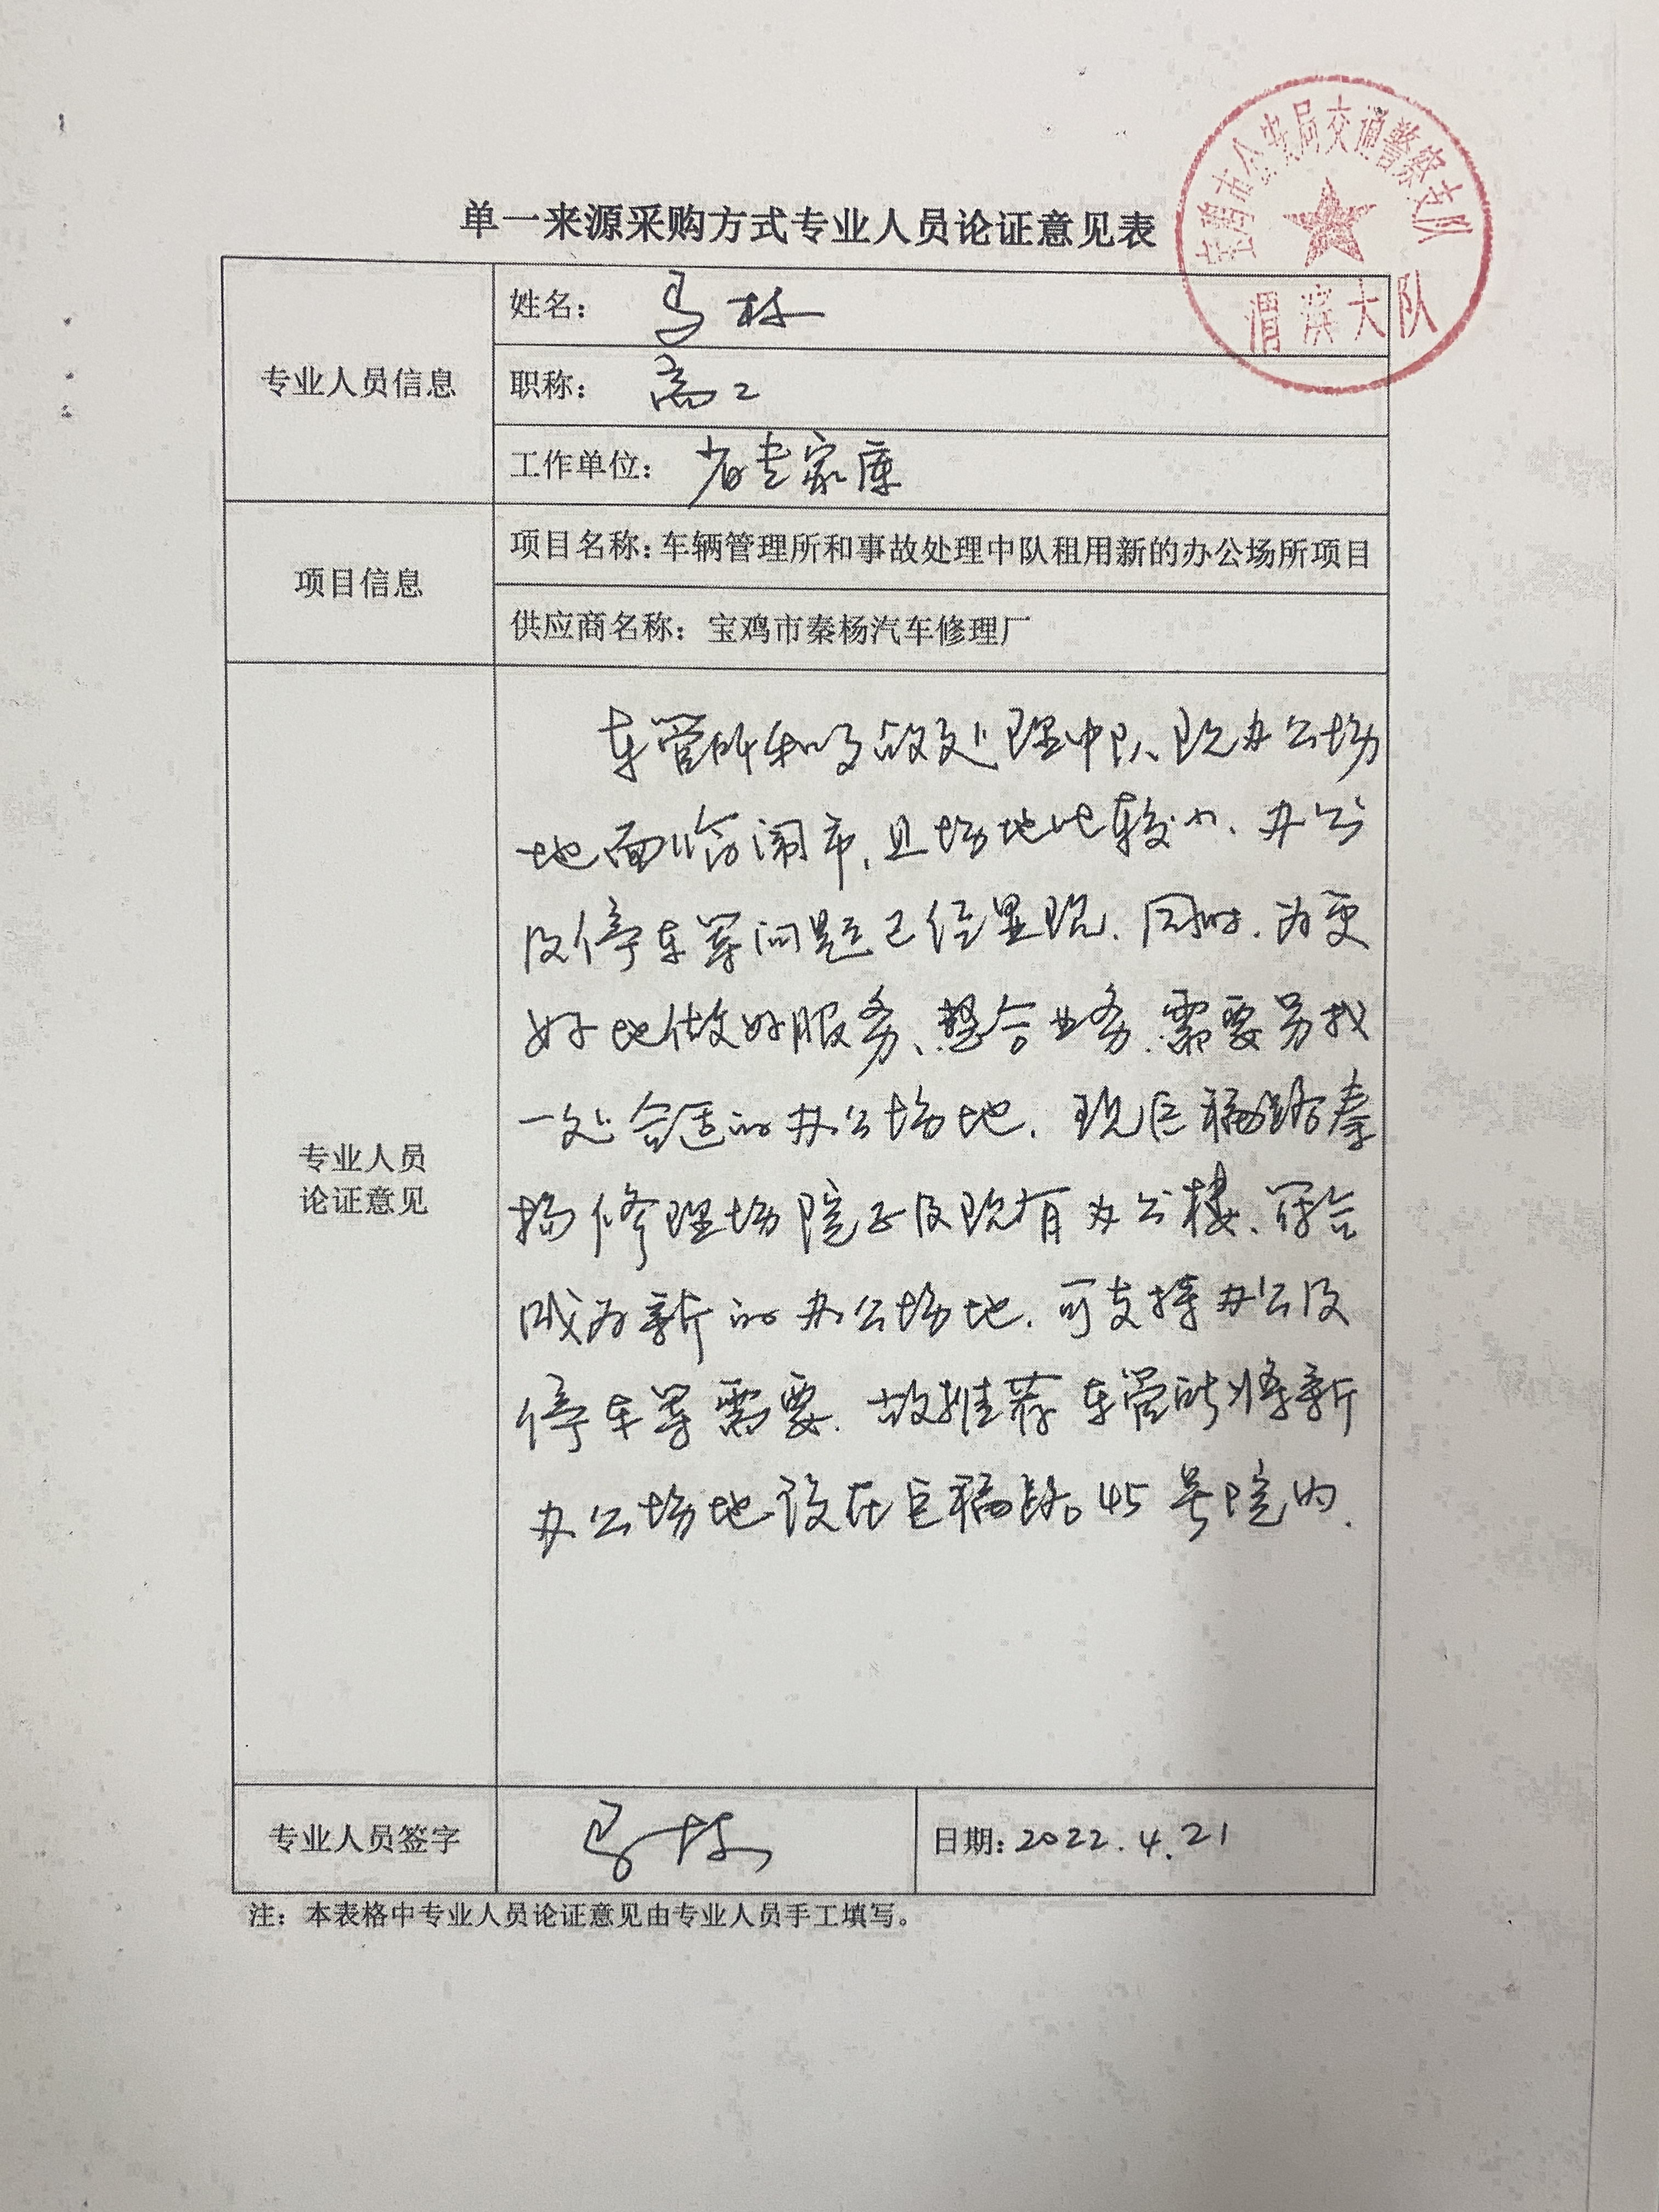 宝鸡市公安局交通警察支队
渭滨大队
单一来源采购方式专业人员论证意见表
专业人员信息
姓名： 马栋
职称： 高工
工作单位： 省专家库
项目信息
项目名称：车辆管理所和事故处理中队租用新的办公场所项目
供应商名称：宝鸡市秦杨汽车修理厂
专业人员
论证意见
车管所和事故处理中队现办公场
地面临闹市，且场地比较小、办公
及停车等问题已经显现．同时．为更
好地做好服务、整合业务．需要另找
一处合适的办公场地．现巨福路秦
杨修理场院子及现有办公楼、符合
成为新的办公场地．可支持办公及
停车等需要．故推荐车管所将新
办公场地设在巨福路。45号院内．
专业人员签字
马栋
日期：2022.4.21
注：本表格中专业人员论证意见由专业人员手工填写。